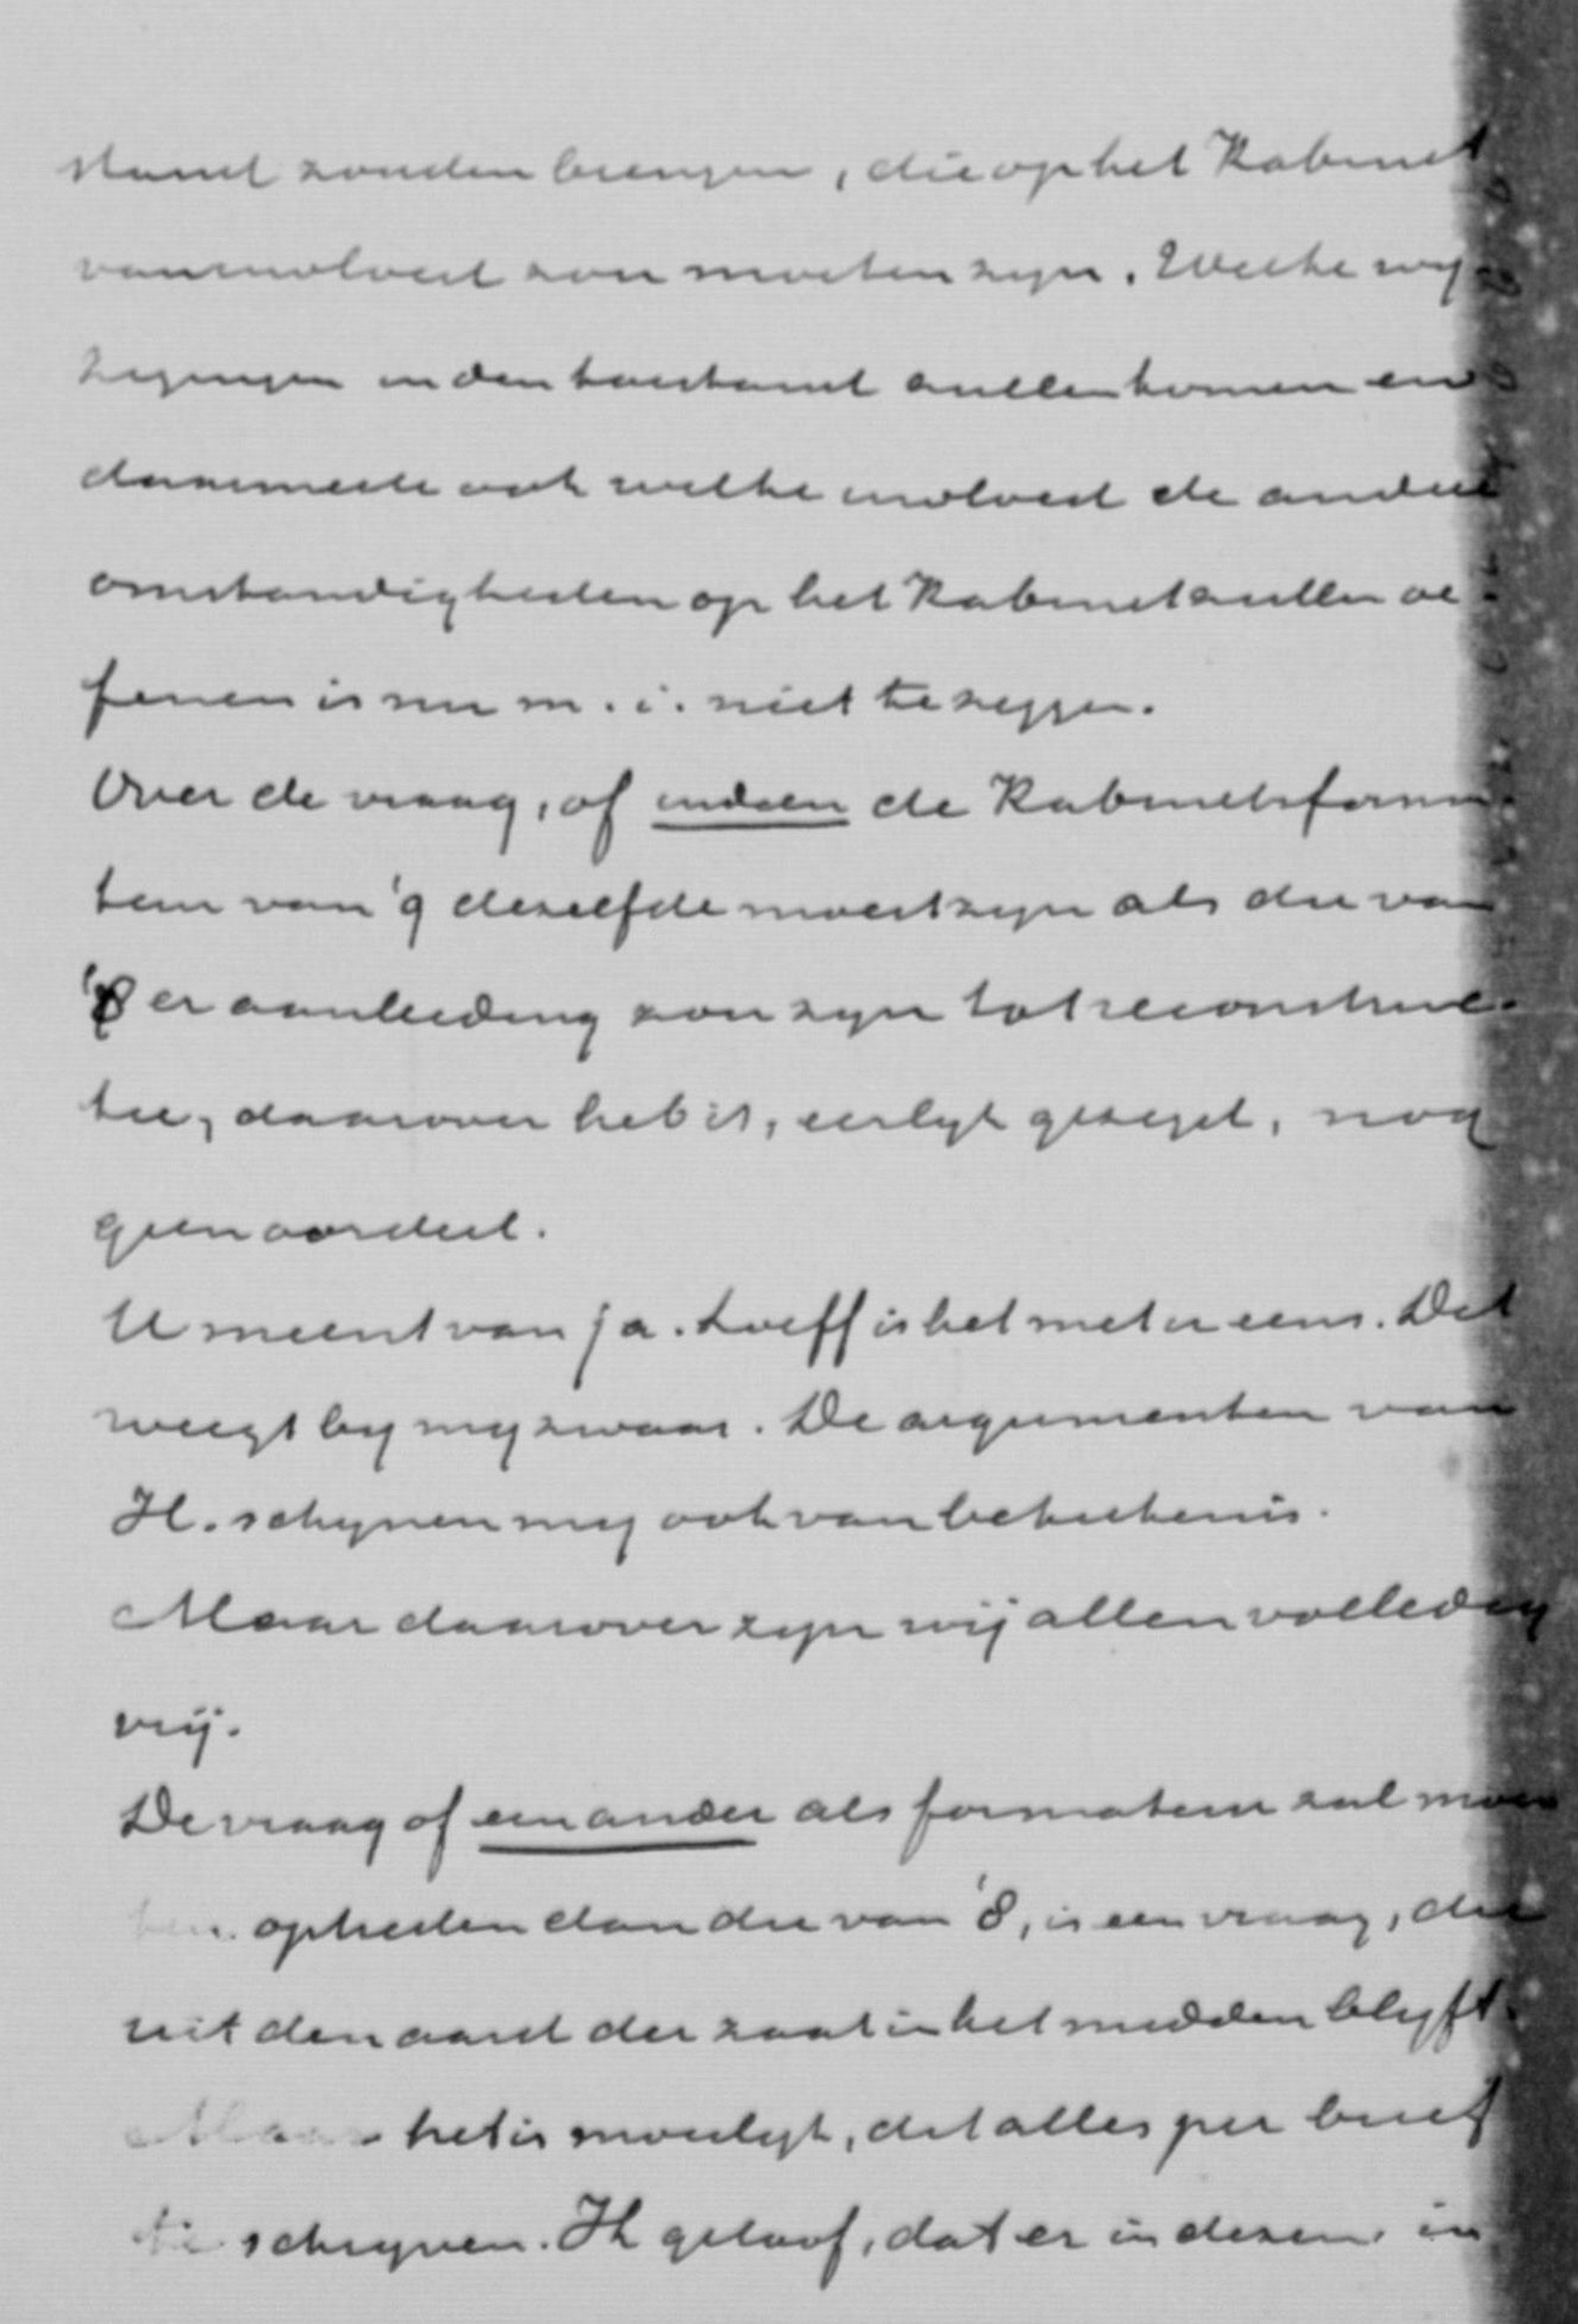 stand zouden brengen, die op het Kabinet
van invloed zou moeten zyn. Welke wy-
zigingen in den toestand zullen komen en
daarmede ook welke invloed de andere
omstandigheden op het Kabinet zullen oe-
fenen is nu m. i. niet te zeggen.
Over de vraag, of indien de Kabinetsforma-
teur van '9 dezelfde moest zyn als die van
'8 er aanleiding zou zyn tot reconstruc-
tie, daarover heb ik, eerlyk gezegd, nog
geen oordeel.
U meent van ja. Loeff is het met u eens. Dat
weegt by my zwaar. De argumenten van
H. schynen my ook van beteekenis.
Maar daarover zyn wij allen volledig
vrij.
De vraag of een ander als formateur zal moe-
ten optreden dan die van '8, is een vraag, die
uit den aard der zaak in het midden blyft.
Maar het is moeilyk, dat alles per brief
te schryven. Ik geloof, dat er in dezen in